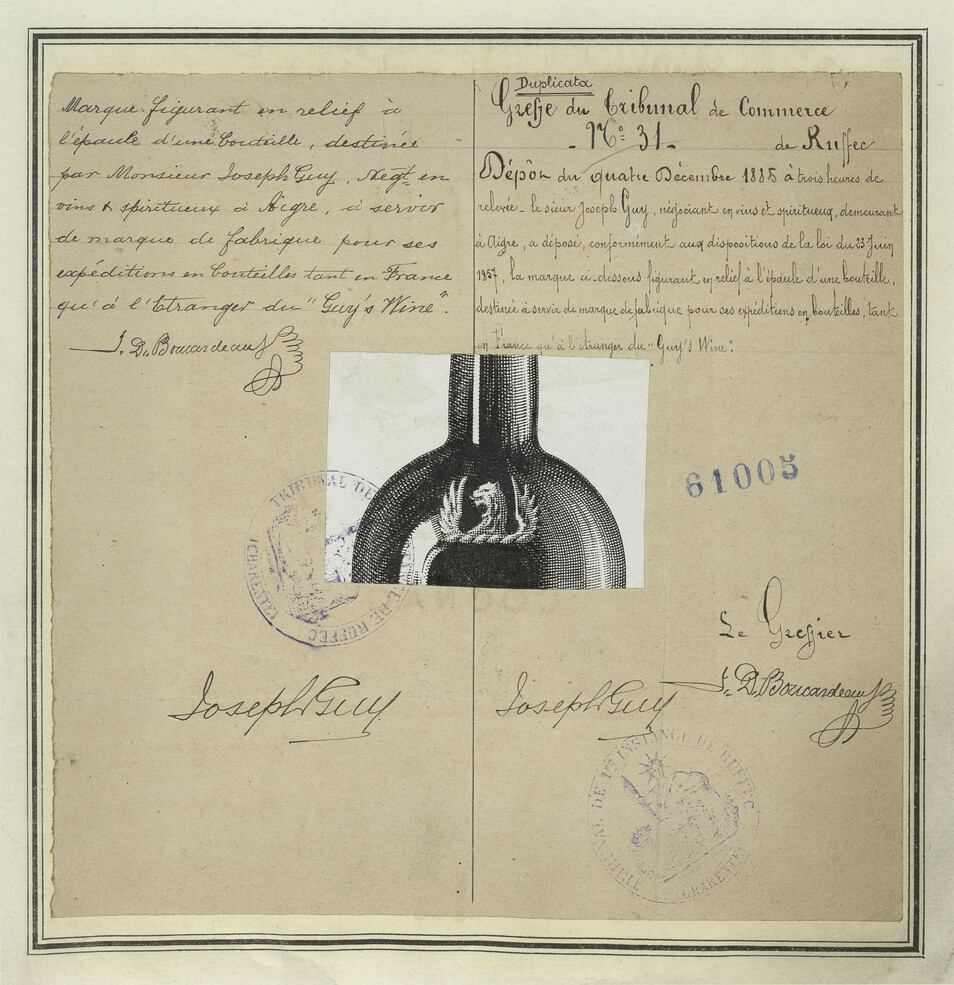 Marque figurant en relief à
l'épaule d'une bouteille, destinée
par Monsieur Joseph Guy, Négt en
vins & spiritueux à Aigre, à servir
de marque de fabrique pour ses
expéditions en bouteilles tant en France
qu'à l'Etranger du "Guy's Wine".
J. D. Boucardeau
Duplicata
Greffe du Tribunal de Commerce
- No: 31 - de Ruffec
Dépôt du quatre Décembre 1885 à trois heures de
relevée - le sieur Joseph Guy, négociant en vins et spiritueux, demeurant
à Aigre, a déposé, conformément aux dispositions de la loi du 23 Juin
1857, la marque ci-dessous figurant en relief à l'épaule d'une bouteille,
destinée à servir de marque de fabrique pour ses expéditions en bouteilles, tant
en France qu'à l'étranger du "Guy's Wine".
61005
TRIBUNAL DE 1re INSTANCE DE RUFFEC
(CHARENTE)
Le Greffier
J. D. Boucardeau
Joseph Guy
Joseph Guy
TRIBUNAL DE 1re INSTANCE DE RUFFEC
(CHARENTE)